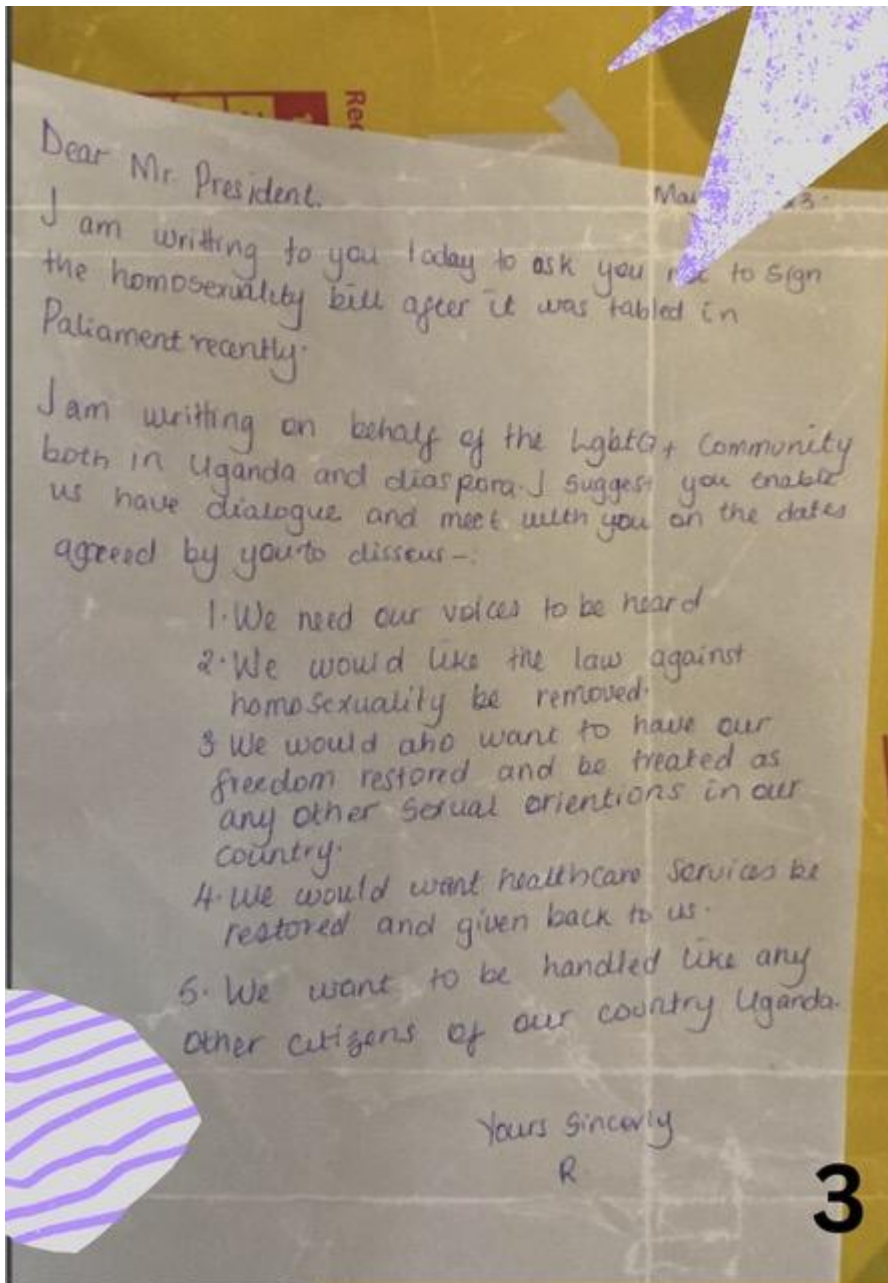 Rec
Dear Mr. President.
Ma
I am writting to you today to ask you to sign
the homosexuality bill after it was tabled in
Paliament recently.
I am writting on behalf of the LgbtQ+ Community
both in Uganda and diaspora. I suggest you enable
us have dialogue and meet with you on the dates
agreed by you to disscus -:
1. We need our voices to be heard
2. We would like the law against
homosexuality be removed.
3 We would also want to have our
freedom restored and be treated as
any other sexual orientions in our
country.
4. We would want healthcare services be
restored and given back to us.
5. We want to be handled like any
other citizens of our country Uganda.
Yours Sincerly
R.
3